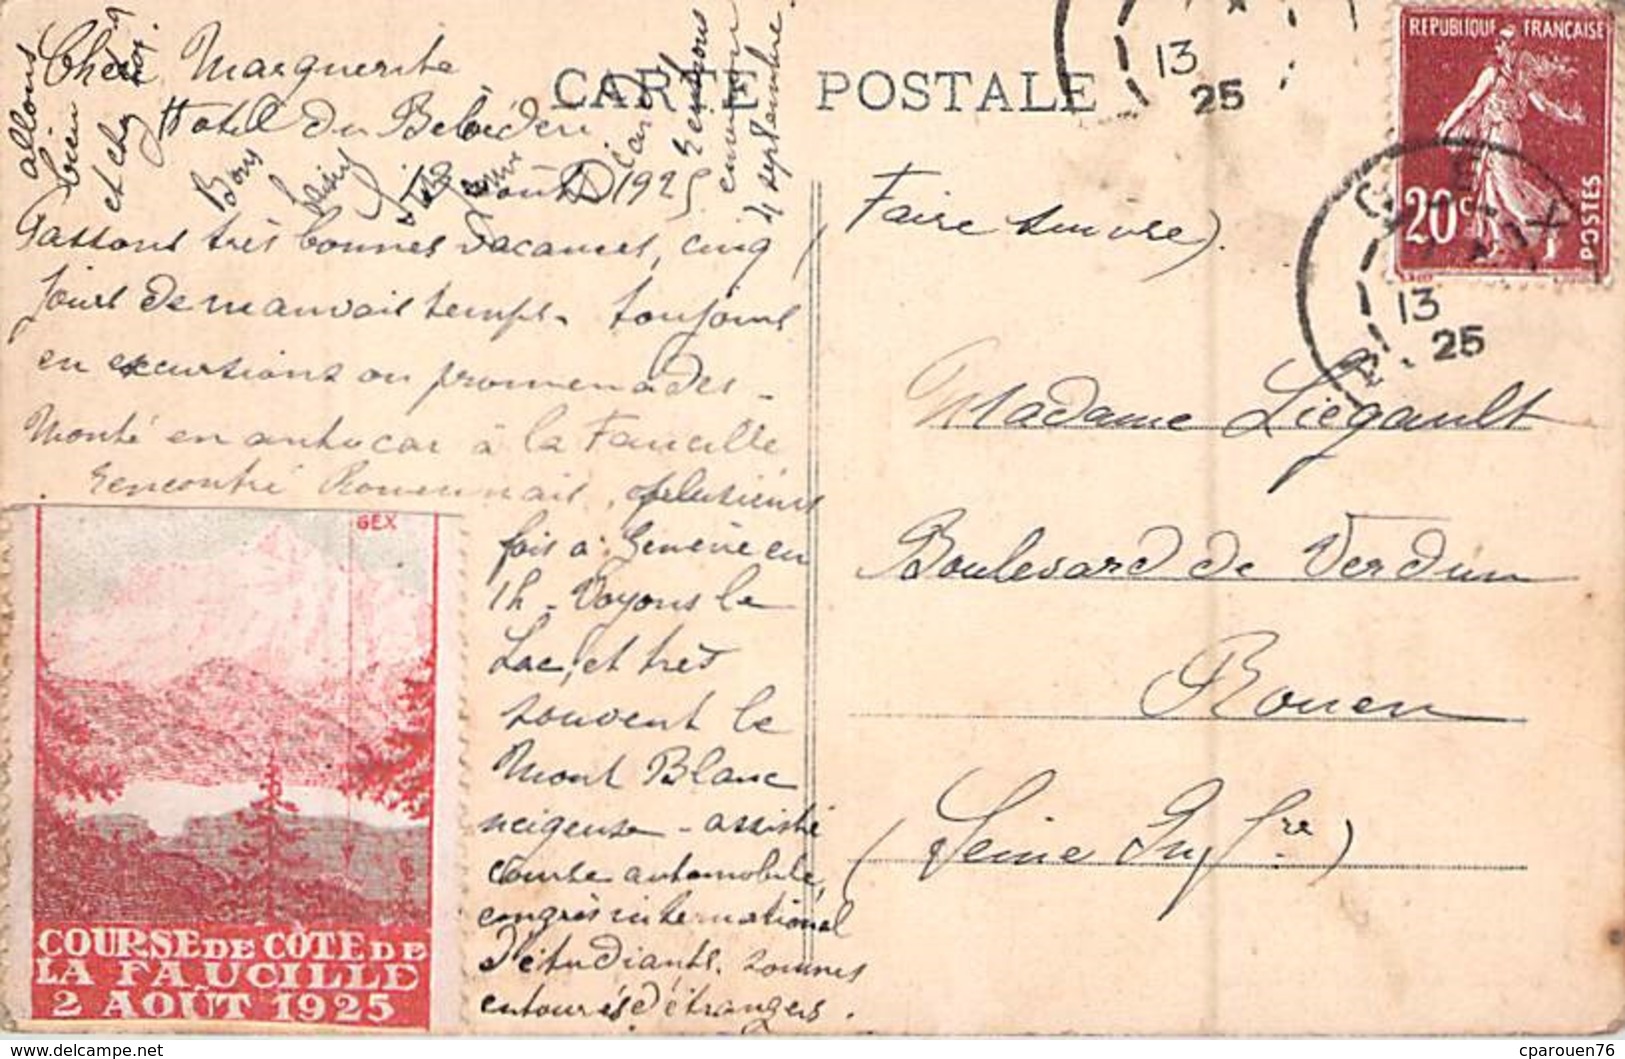 CARTE POSTALE
Chère Marguerite
Hotel du Belvédère
12 août 1925
Passons très bonnes vacances, cinq
jours de mauvais temps. toujours
en excursions ou promenades -
Monté en autocar à la Faucille
rencontré Rouennais, plusieurs
fois à Genève en
1h - Voyons le
Lac, et très
souvent le
Mont Blanc
neigeuse - assisté
course automobile,
congrès international
d'étudiants. sommes
entourés d'étrangers.
allons
bien
et chez
Bons
Rentrons
environ
4 septembre.
(Faire suivre).
Madame Liégault
Boulevard de Verdun
Rouen
(Seine Infre)
REPUBLIQUE FRANÇAISE
20c
POSTES
13
25
GEX
13
25
GEX
COURSE DE CÔTE DE
LA FAUCILLE
2 AOÛT 1925
cparouen76
www.delcampe.net